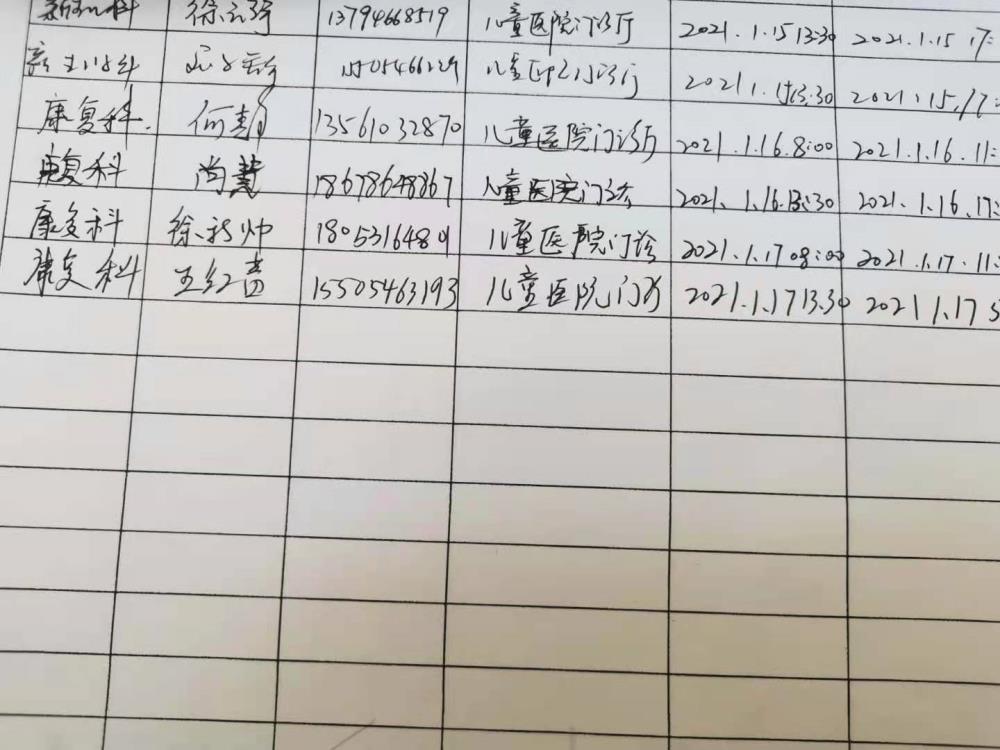 新生儿科 徐 13794668519 儿童医院门诊厅 2021.1.15 13:30 2021.1.15 17:
儿童医院门诊厅 2021.1.15 13:30 2021.1.15.17:
康复科. 何静 13561032870 儿童医院门诊厅 2021.1.16.8:00 2021.1.16.11:
康复科 尚慧 18678648867 儿童医院门诊 2021.1.16.13:30 2021.1.16.17:
康复科 徐 帅 18053164801 儿童医院门诊 2021.1.17 08:00 2021.1.17.11:
康复科 王红 15505463193 儿童医院门诊 2021.1.17 13.30 2021 1.17 5